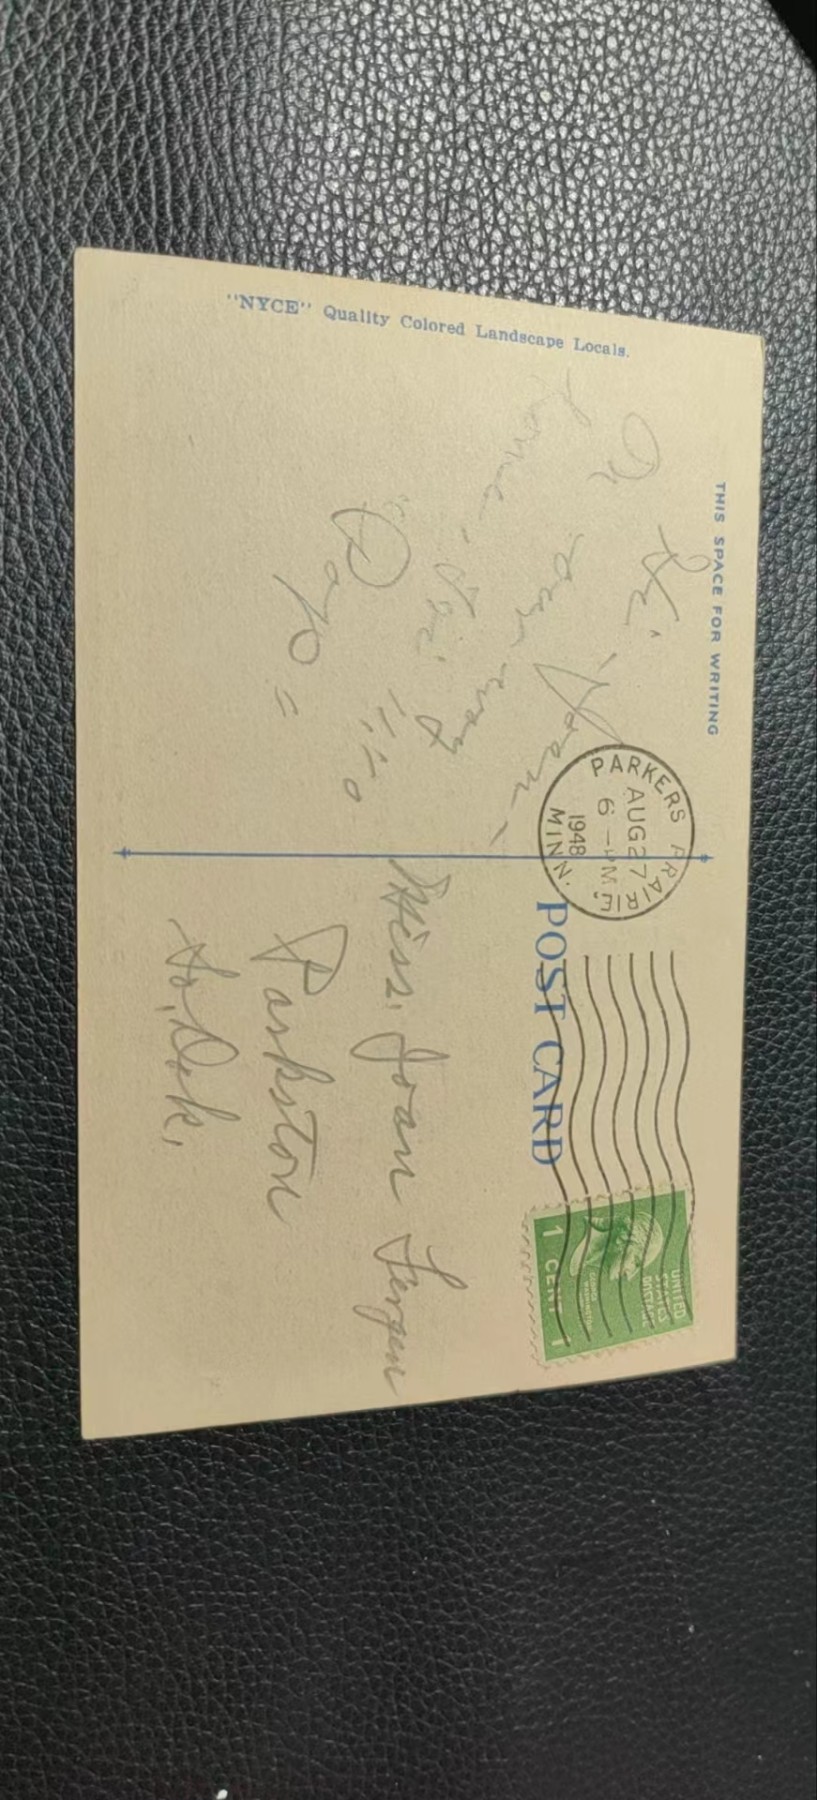 THIS SPACE FOR WRITING
"NYCE" Quality Colored Landscape Locals.
Hi, Joan -
On our way
home - Fri.
"Pop"
PARKERS PRAIRIE,
AUG 27
6 - PM
1948
MINN.
POST CARD
UNITED
STATES
POSTAGE
1 CENT 1
Miss. Joan
Parkston
So. Dak.